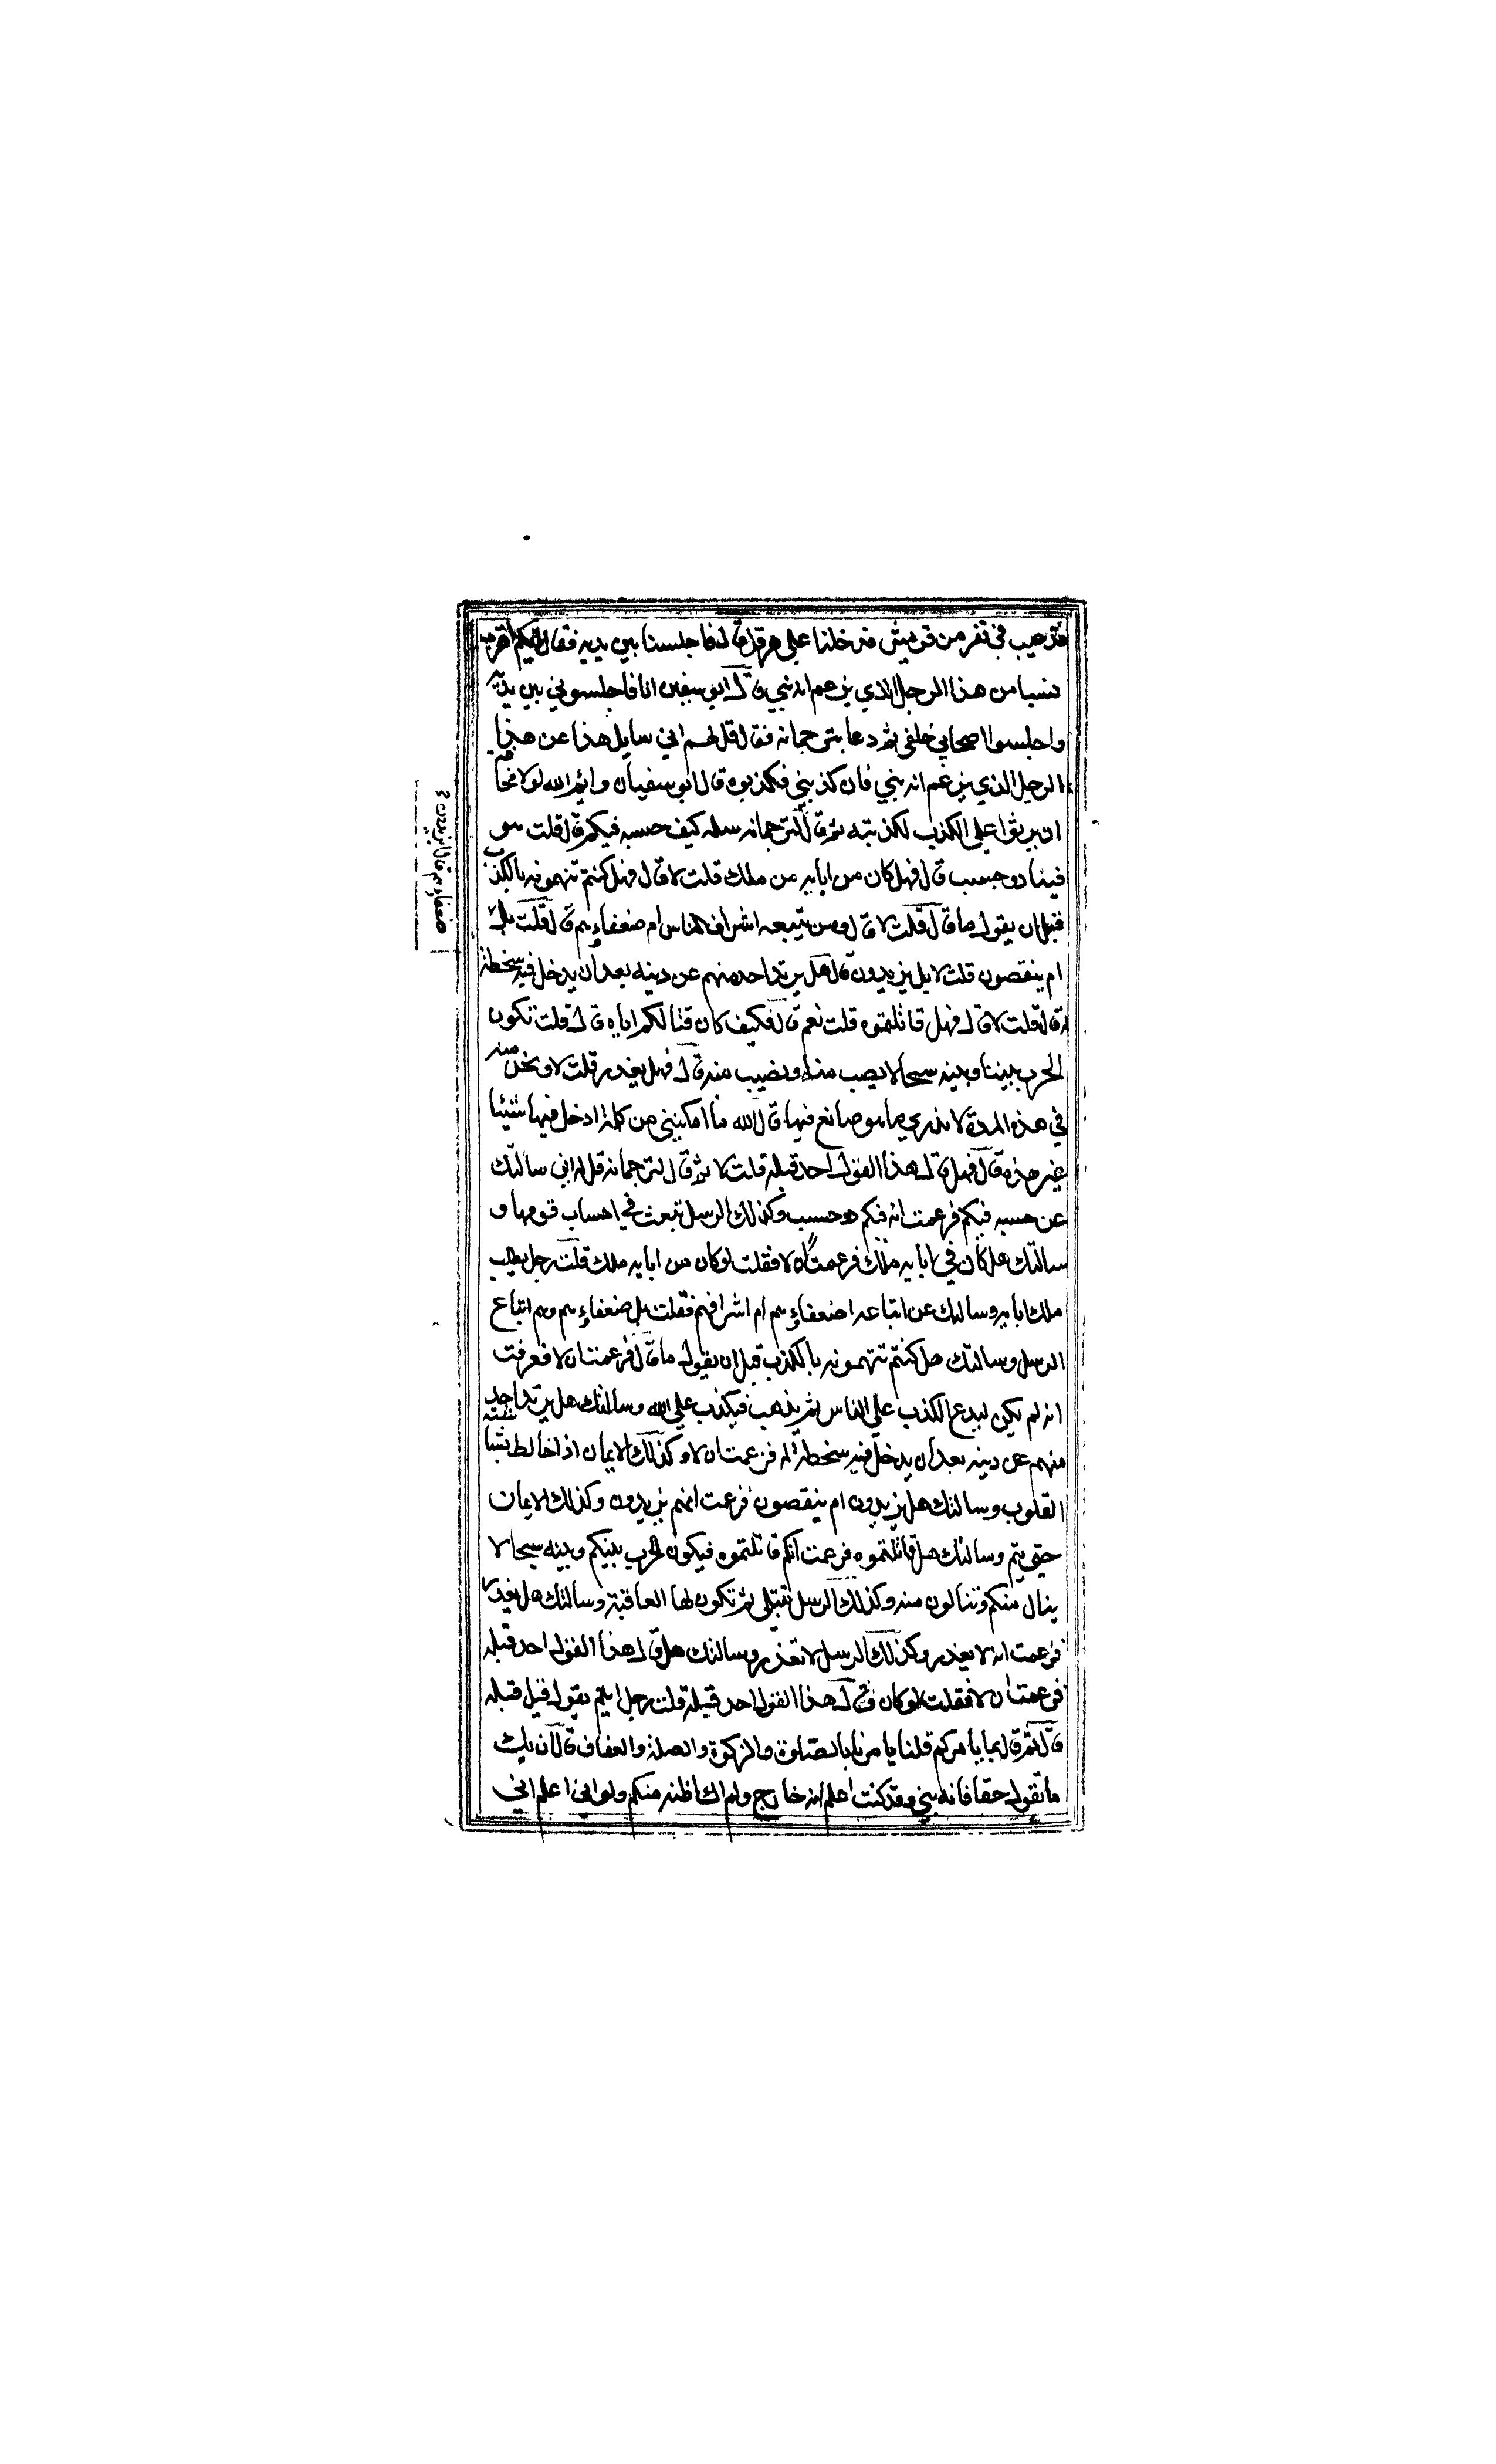 فدعيت في نفر من قريش فدخلنا على هرقل قال فاجلسنا بين يديه فقال ايكم اقرب
نسبا من هذا الرجل الذي يزعم انه نبي قال ابو سفين انا فاجلسوني بين يديه
واجلسوا اصحابي خلفي ثم دعا بترجمانه فقال قل لهم اني سايل هذا عن هذا
الرجل الذي يزعم انه نبي فان كذبني فكذبوه قال ابو سفيان وايم الله لولا مخافة
ان يوثروا علي الكذب لكذبته ثم قال لترجمانه سله كيف حسبه فيكم قال قلت هو
فينا ذو حسب قال فهل كان من ابايه من ملك قلت لا قال فهل كنتم تتهمونه بالكذب
قبل ان يقول ما قال قلت لا قال ومن يتبعه اشراف الناس ام ضعفاءهم قال قلت بل
ضعفاوهم قال ايزيدون
ام ينقصون قلت لا بل يزيدون قال هل يرتد احد منهم عن دينه بعد ان يدخل فيه سخطة
له قال قلت لا قال فهل قاتلتموه قلت نعم قال فكيف كان قتالكم اياه قال قلت تكون
الحرب بيننا وبينه سجالا يصيب منا ونصيب منه قال فهل يغدر قلت لا ونحن منه
في هذه المدة لا ندري ما هو صانع فيها قال والله ما امكنني من كلمة ادخل فيها شيئا
غير هذه قال فهل قال هذا القول احد قبله قلت لا ثم قال لترجمانه قل له اني سالتك
عن حسبه فيكم فزعمت انه فيكم ذو حسب وكذلك الرسل تبعث في احساب قومها و
سالتك هل كان في ابايه ملك فزعمت ان لا فقلت لو كان من ابايه ملك قلت رجل يطلب
ملك ابايه وسالتك عن اتباعه اضعفاءهم ام اشرافهم فقلت بل ضعفاءهم وهم اتباع
الرسل وسالتك هل كنتم تتهمونه بالكذب قبل ان يقول ما قال فزعمت ان لا فعرفت
انه لم يكن ليدع الكذب علي الناس ثم يذهب فيكذب علي الله وسالتك هل يرتد احد
منهم عن دينه بعد ان يدخل فيه سخطة له فزعمت ان لا وكذلك الايمان اذا خالط بشاشة
القلوب وسالتك هل يزيدون ام ينقصون فزعمت انهم يزيدون وكذلك الايمان
حتي يتم وسالتك هل قاتلتموه فزعمت انكم قاتلتموه فيكون الحرب بينكم وبينه سجالا
ينال منكم وتنالون منه وكذلك الرسل تبتلي ثم تكون لها العاقبة وسالتك هل يغدر
فزعمت انه لا يغدر وكذلك الرسل لا تغدر وسالتك هل قال هذا القول احد قبله
فزعمت ان لا فقلت لو كان قال هذا القول احد قبله قلت رجل ايتم بقول قيل قبله
قال ثم قال بما يامركم قلنا يامرنا بالصلوة والزكوة والصلة والعفاف قال ان يك
ما تقول حقا فانه نبي وقد كنت اعلم انه خارج ولم اك اظنه منكم ولو اني اعلم اني